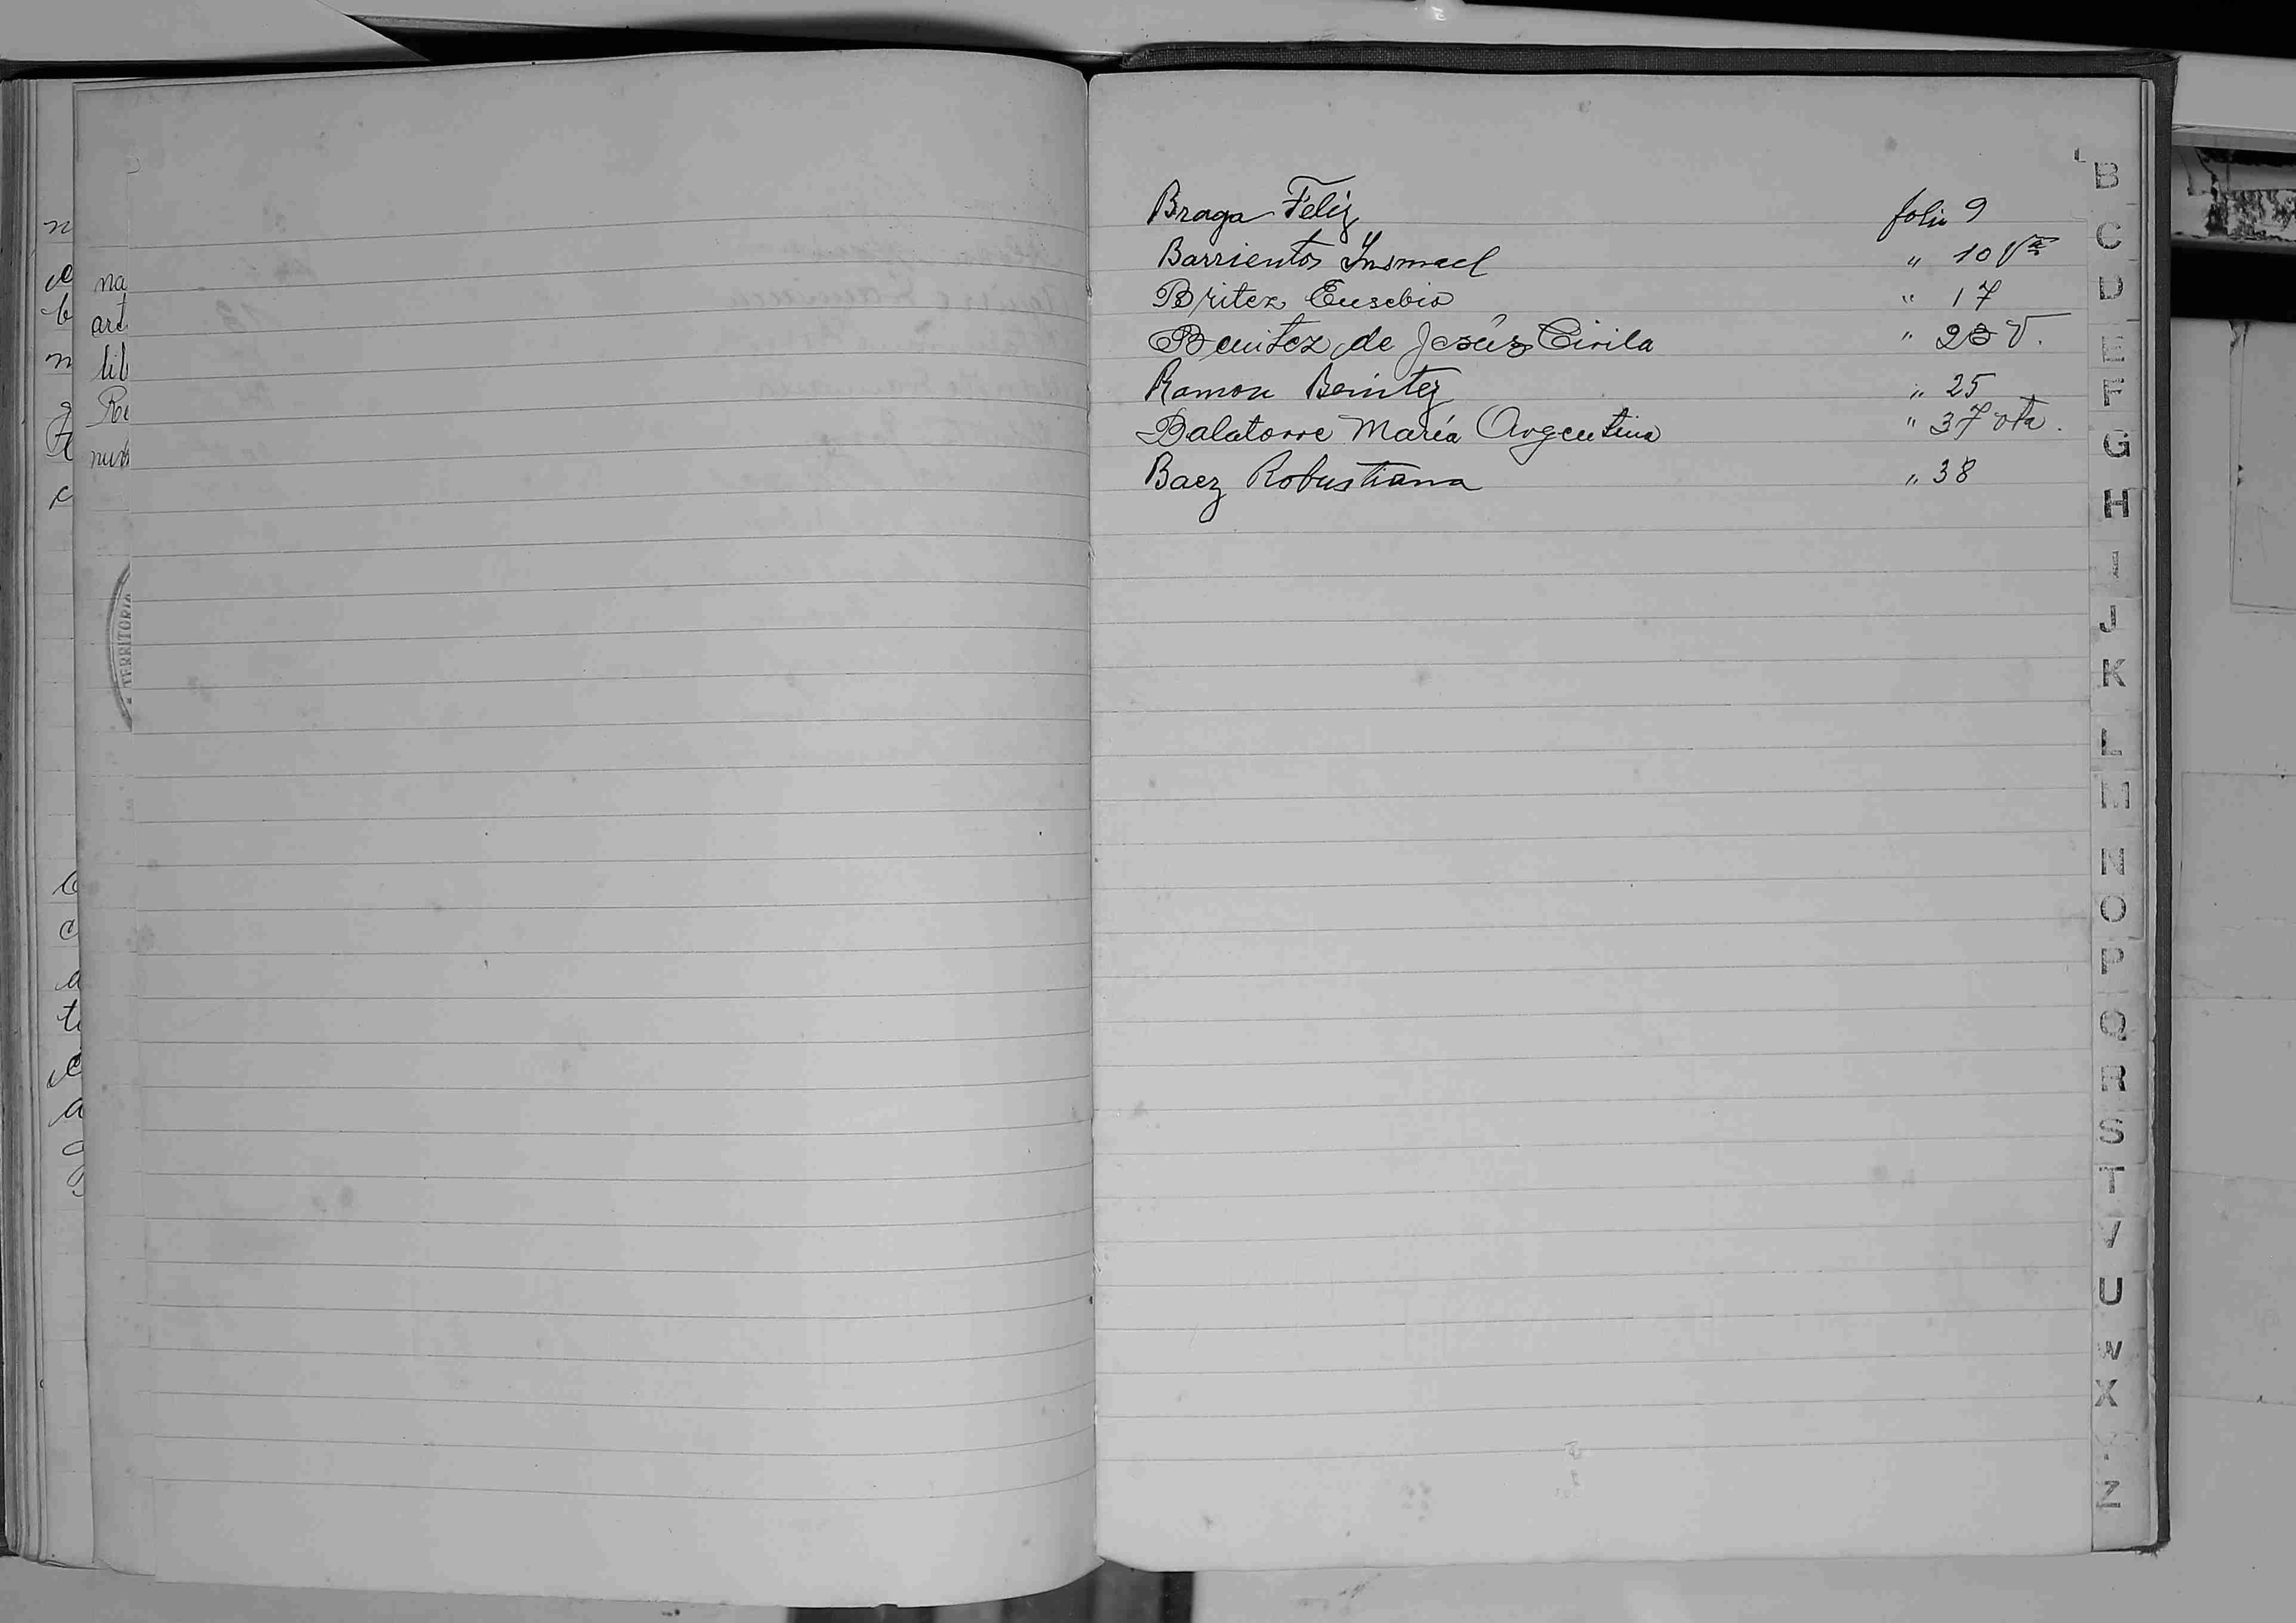 na
art
lib
Re
TERRITORIA
Braga Feliz folio 9
Barrientos Ynsmael " 10 Vta
Britez Eusebio " 17
Benitez de Jesús Cirila " 23 V.
Ramon Benitez " 25
Balatorre María Argentina " 37 vta.
Baez Robustiana " 38
B
C
D
E
F
G
H
I
J
K
L
M
N
O
P
Q
R
S
T
V
U
W
X
Y
Z